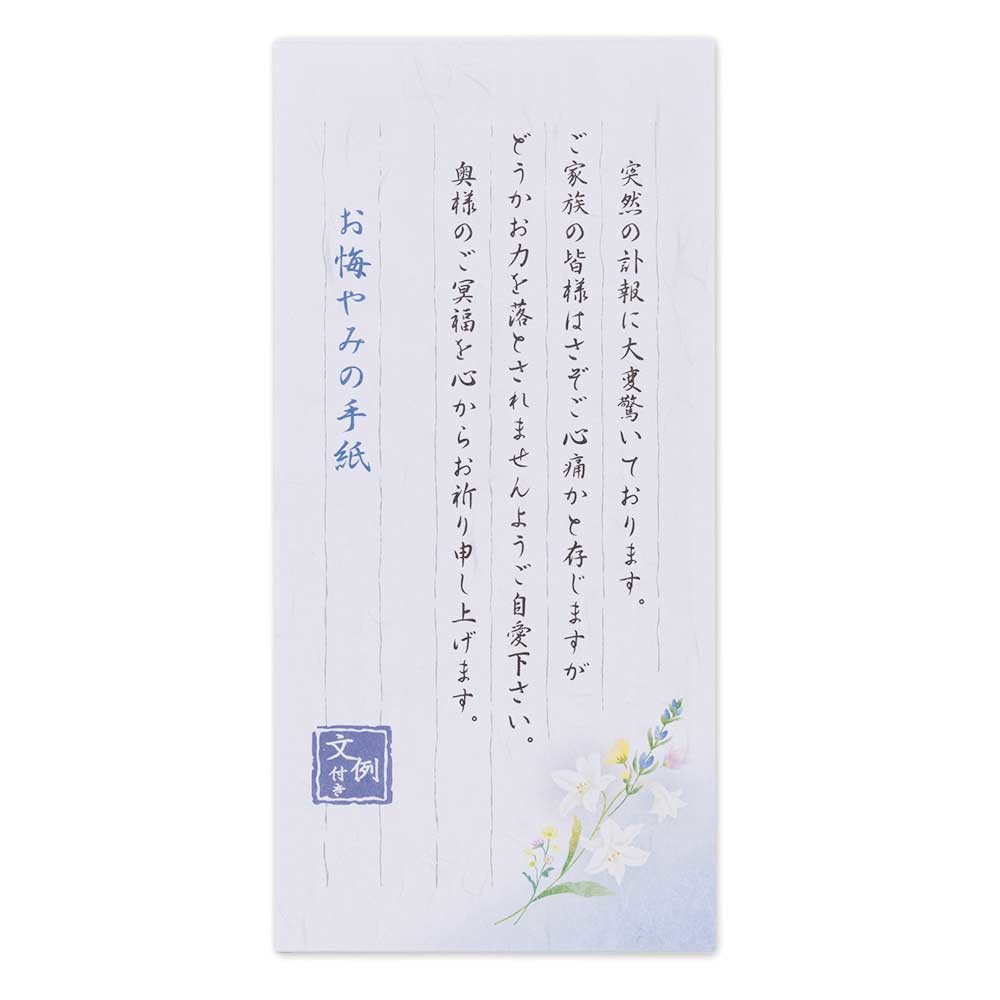 突然の訃報に大変驚いております。
ご家族の皆様はさぞご心痛かと存じますが
どうかお力を落とされませんようご自愛下さい。
奥様のご冥福を心からお祈り申し上げます。
お悔やみの手紙
文例
付き